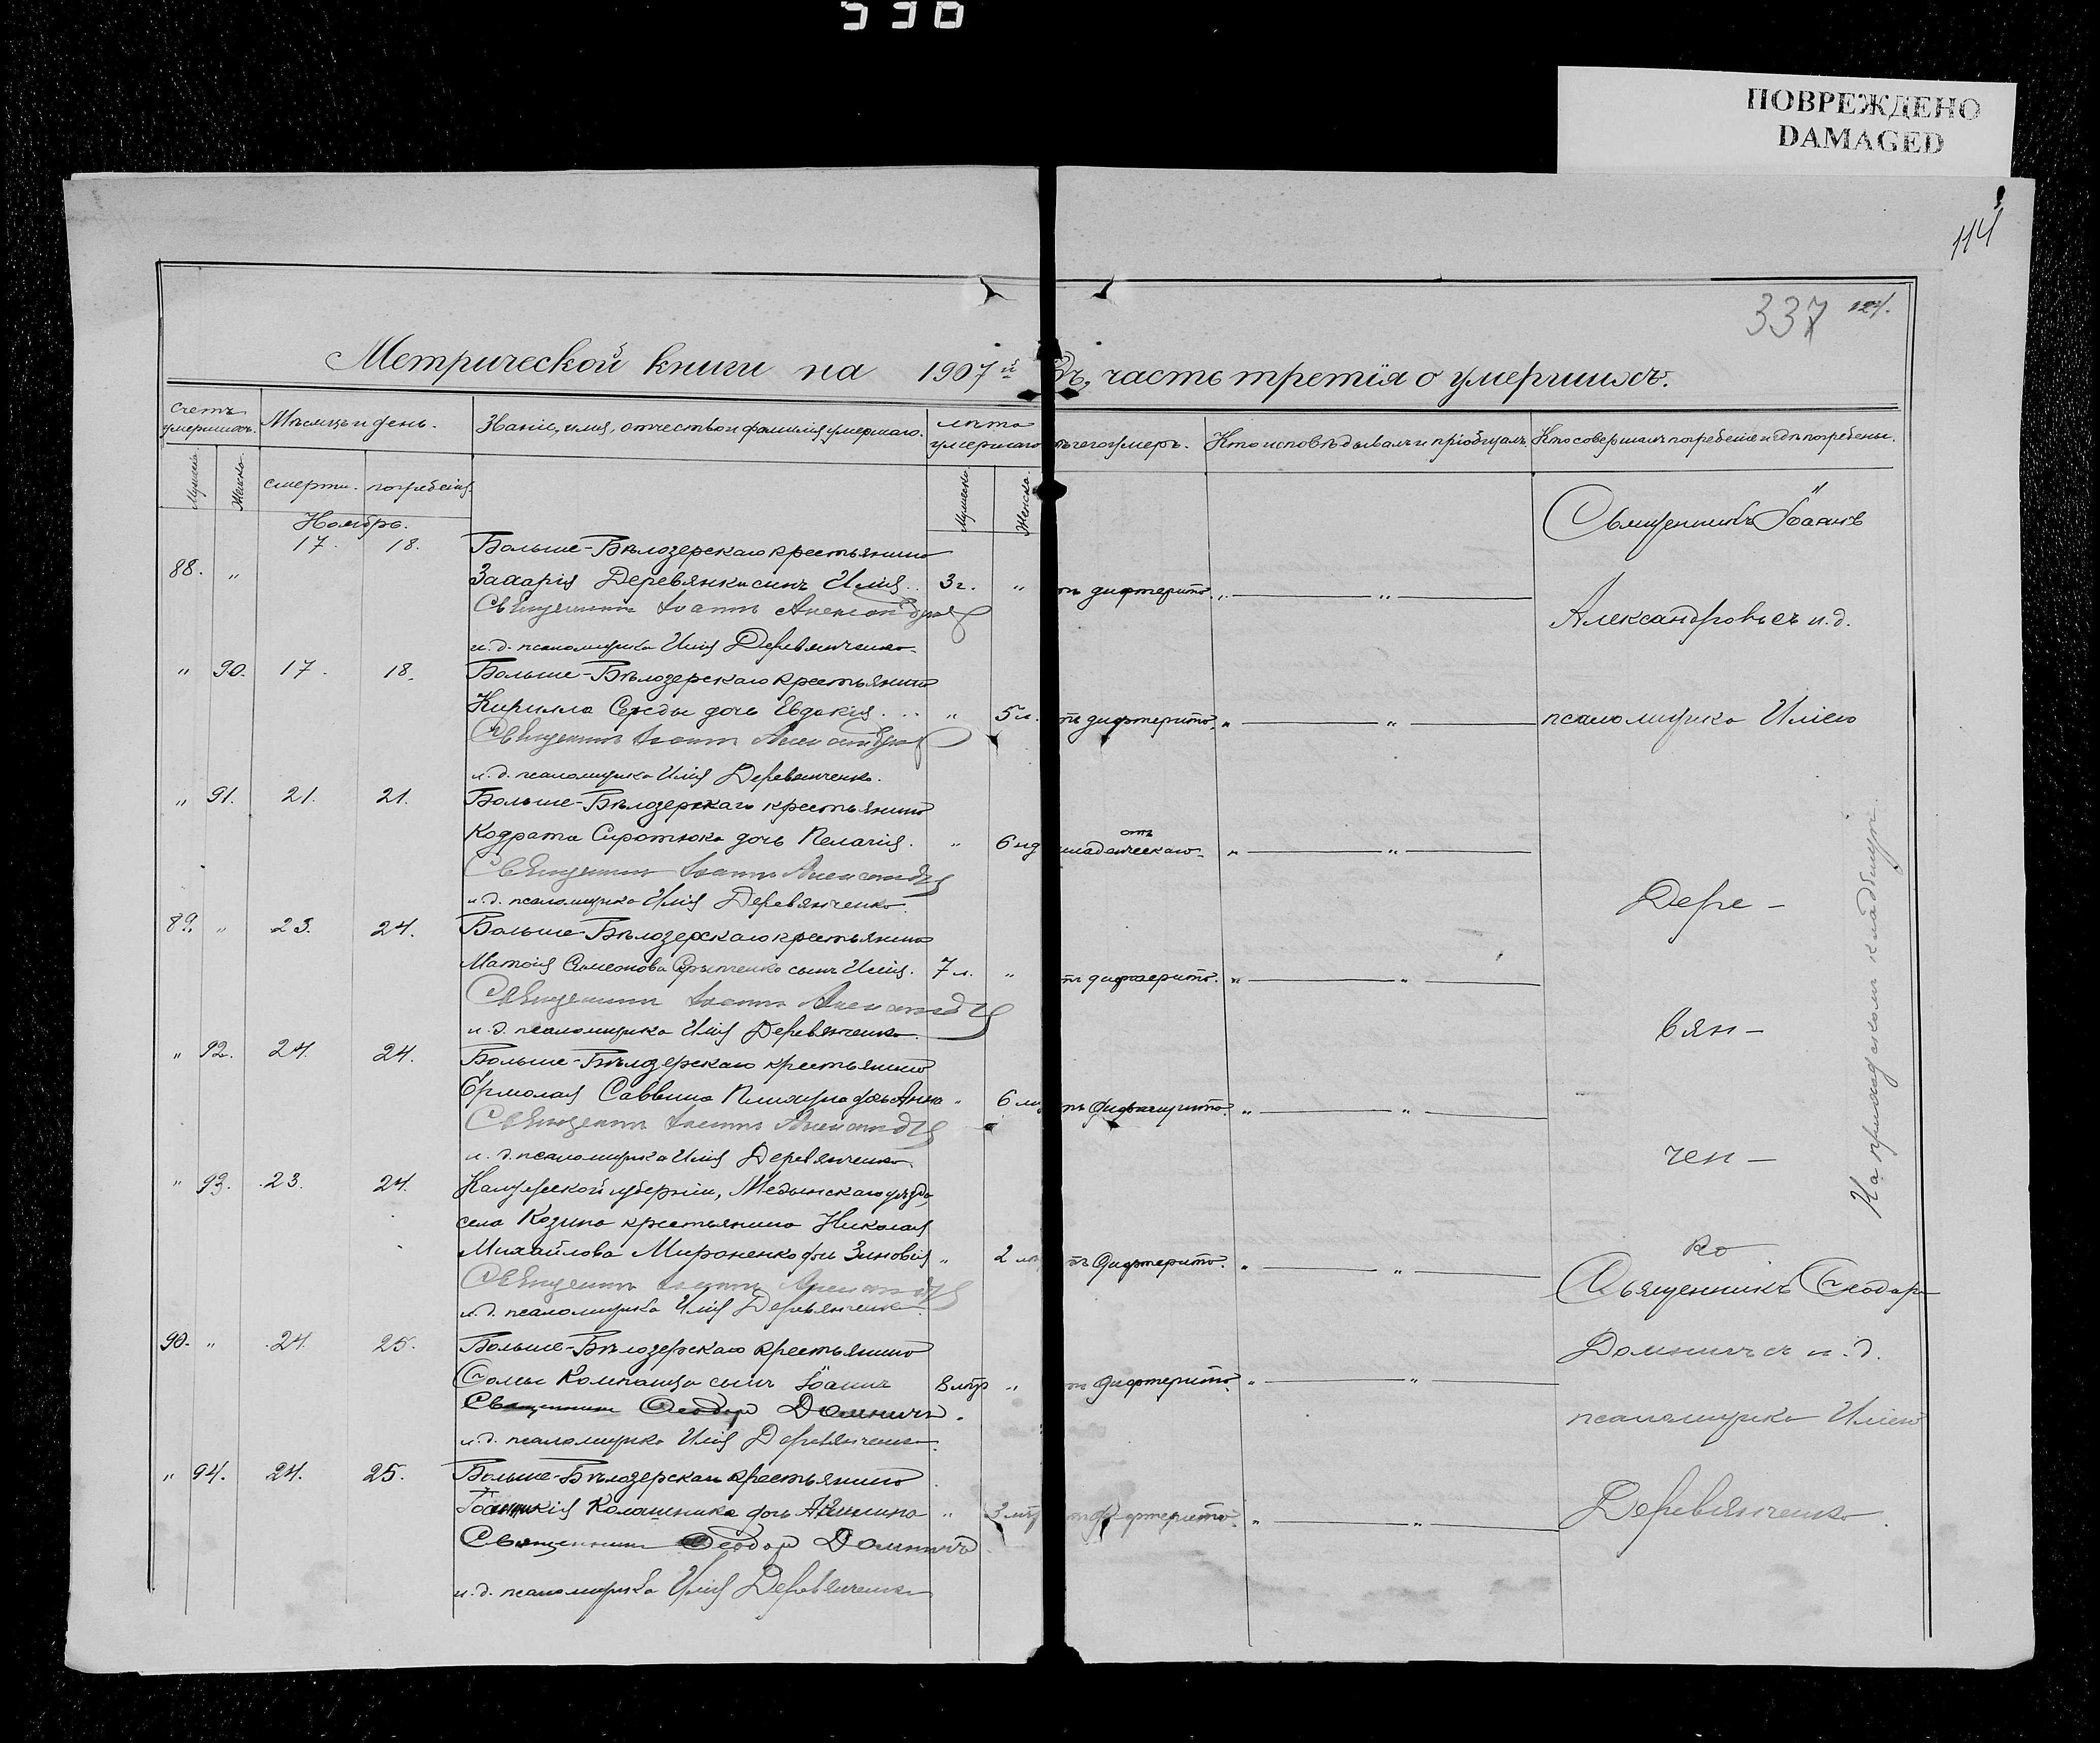 ПОВРЕЖДЕНО
DAMAGED
114
337 124.
Метрической книги на 1907й
ъ, часть третія о умершихъ.
счетъ умершихъ. Мѣсяцъ и день. Званіе, имя, отчество и фамилія умершаго. лѣта умершаго чего умеръ. Кто исповѣдывалъ и пріобщалъ. Кто совершалъ погребеніе и гдѣ погребены.
Мужеска. Женска. смерти. погребенія. Мужеска. Женска.
Ноябрь.
17. 18. Больше-Бѣлозерскаго крестьянина
88. " Захарія Деревянки сынъ Илія.. 3 г. " тъ дифтерита. " "
Священникъ Іоаннъ Александровъ
и. д. псаломщика Илія Деревянченко.
" 90. 17. 18. Больше-Бѣлозерскаго крестьянина
Кирилла Середы дочь Евдокія... " 5 л. тъ дифтерита. " "
Священникъ Іоаннъ Александровъ
и. д. псаломщика Илія Деревянченко.
" 91. 21. 21. Больше-Бѣлозерскаго крестьянина
Кодрата Сиротюка дочь Пелагія. " 6 нд отъ младенческаго. " "
Священникъ Іоаннъ Александровъ
и. д. псаломщика Илія Деревянченко.
89. " 23. 24. Больше-Бѣлозерскаго крестьянина
Симеонова сынъ Илія. 7 л. " тъ дифтерита. " "
Священникъ Іоаннъ Александровъ
и. д. псаломщика Илія Деревянченко.
" 92. 24. 24. Больше-Бѣлозерскаго крестьянина
Ермолая Саввина дочь Анна " 6 тъ дифтерита. " "
Священникъ Іоаннъ Александровъ
и. д. псаломщика Илія Деревянченко.
" 93. 23. 24. Калужской губерніи, Медынскаго уѣзда,
села Козина крестьянина Николая
Михайлова Мироненко дочь Зиновія " 2 тъ дифтерита. " "
Священникъ Іоаннъ Александровъ
и. д. псаломщика Илія Деревянченко.
90. " 24. 25. Больше-Бѣлозерскаго крестьянина
Ѳомы Компанца сынъ Іоаннъ 8 мѣс " дифтерита. " "
Священникъ Ѳеодоръ Домничъ.
и. д. псаломщика Илія Деревянченко.
" 94. 24. 25. Больше-Бѣлозерскаго крестьянина
Калашника дочь Акилина " 3 мѣс дифтерита. " "
Священникъ Ѳеодоръ Домничъ
и. д. псаломщика Илія Деревянченко
Священникъ Іоаннъ
Александровъ съ и. д.
псаломщика Иліею
Дере-
вян-
чен-
ко
Священникъ Ѳеодоръ
Домничъ съ и. д.
псаломщика Иліею
Деревянченко.
На приходскомъ кладбищѣ.